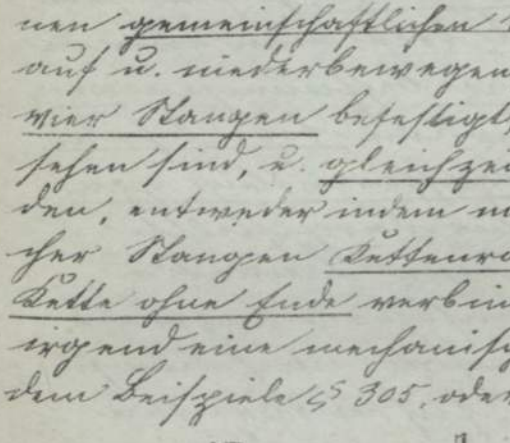 nen gemeinschaftlichen
auf u. niederbewegen
vier Stangen befestigt,
sehen sind, u. gleichzei
den, entweder indem m
cher Stangen Kettenra
Kette ohne Ende verbin
irgend eine mechanisc
dem Beispiele § 305, oder